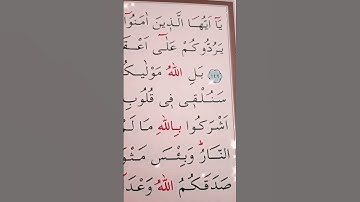 يَٓا اَيُّهَا الَّذ۪ينَ اٰمَنُٓوا
يَرُدُّوكُمْ عَلٰٓى اَعْقَا
بَلِ اللّٰهُ مَوْلٰيكُ
سَنُلْق۪ي ف۪ي قُلُوبِ
اَشْرَكُوا بِاللّٰهِ مَا لَمْ
النَّارُۜ وَبِئْسَ مَثْوَ
صَدَقَكُمُ اللّٰهُ وَعْدَ